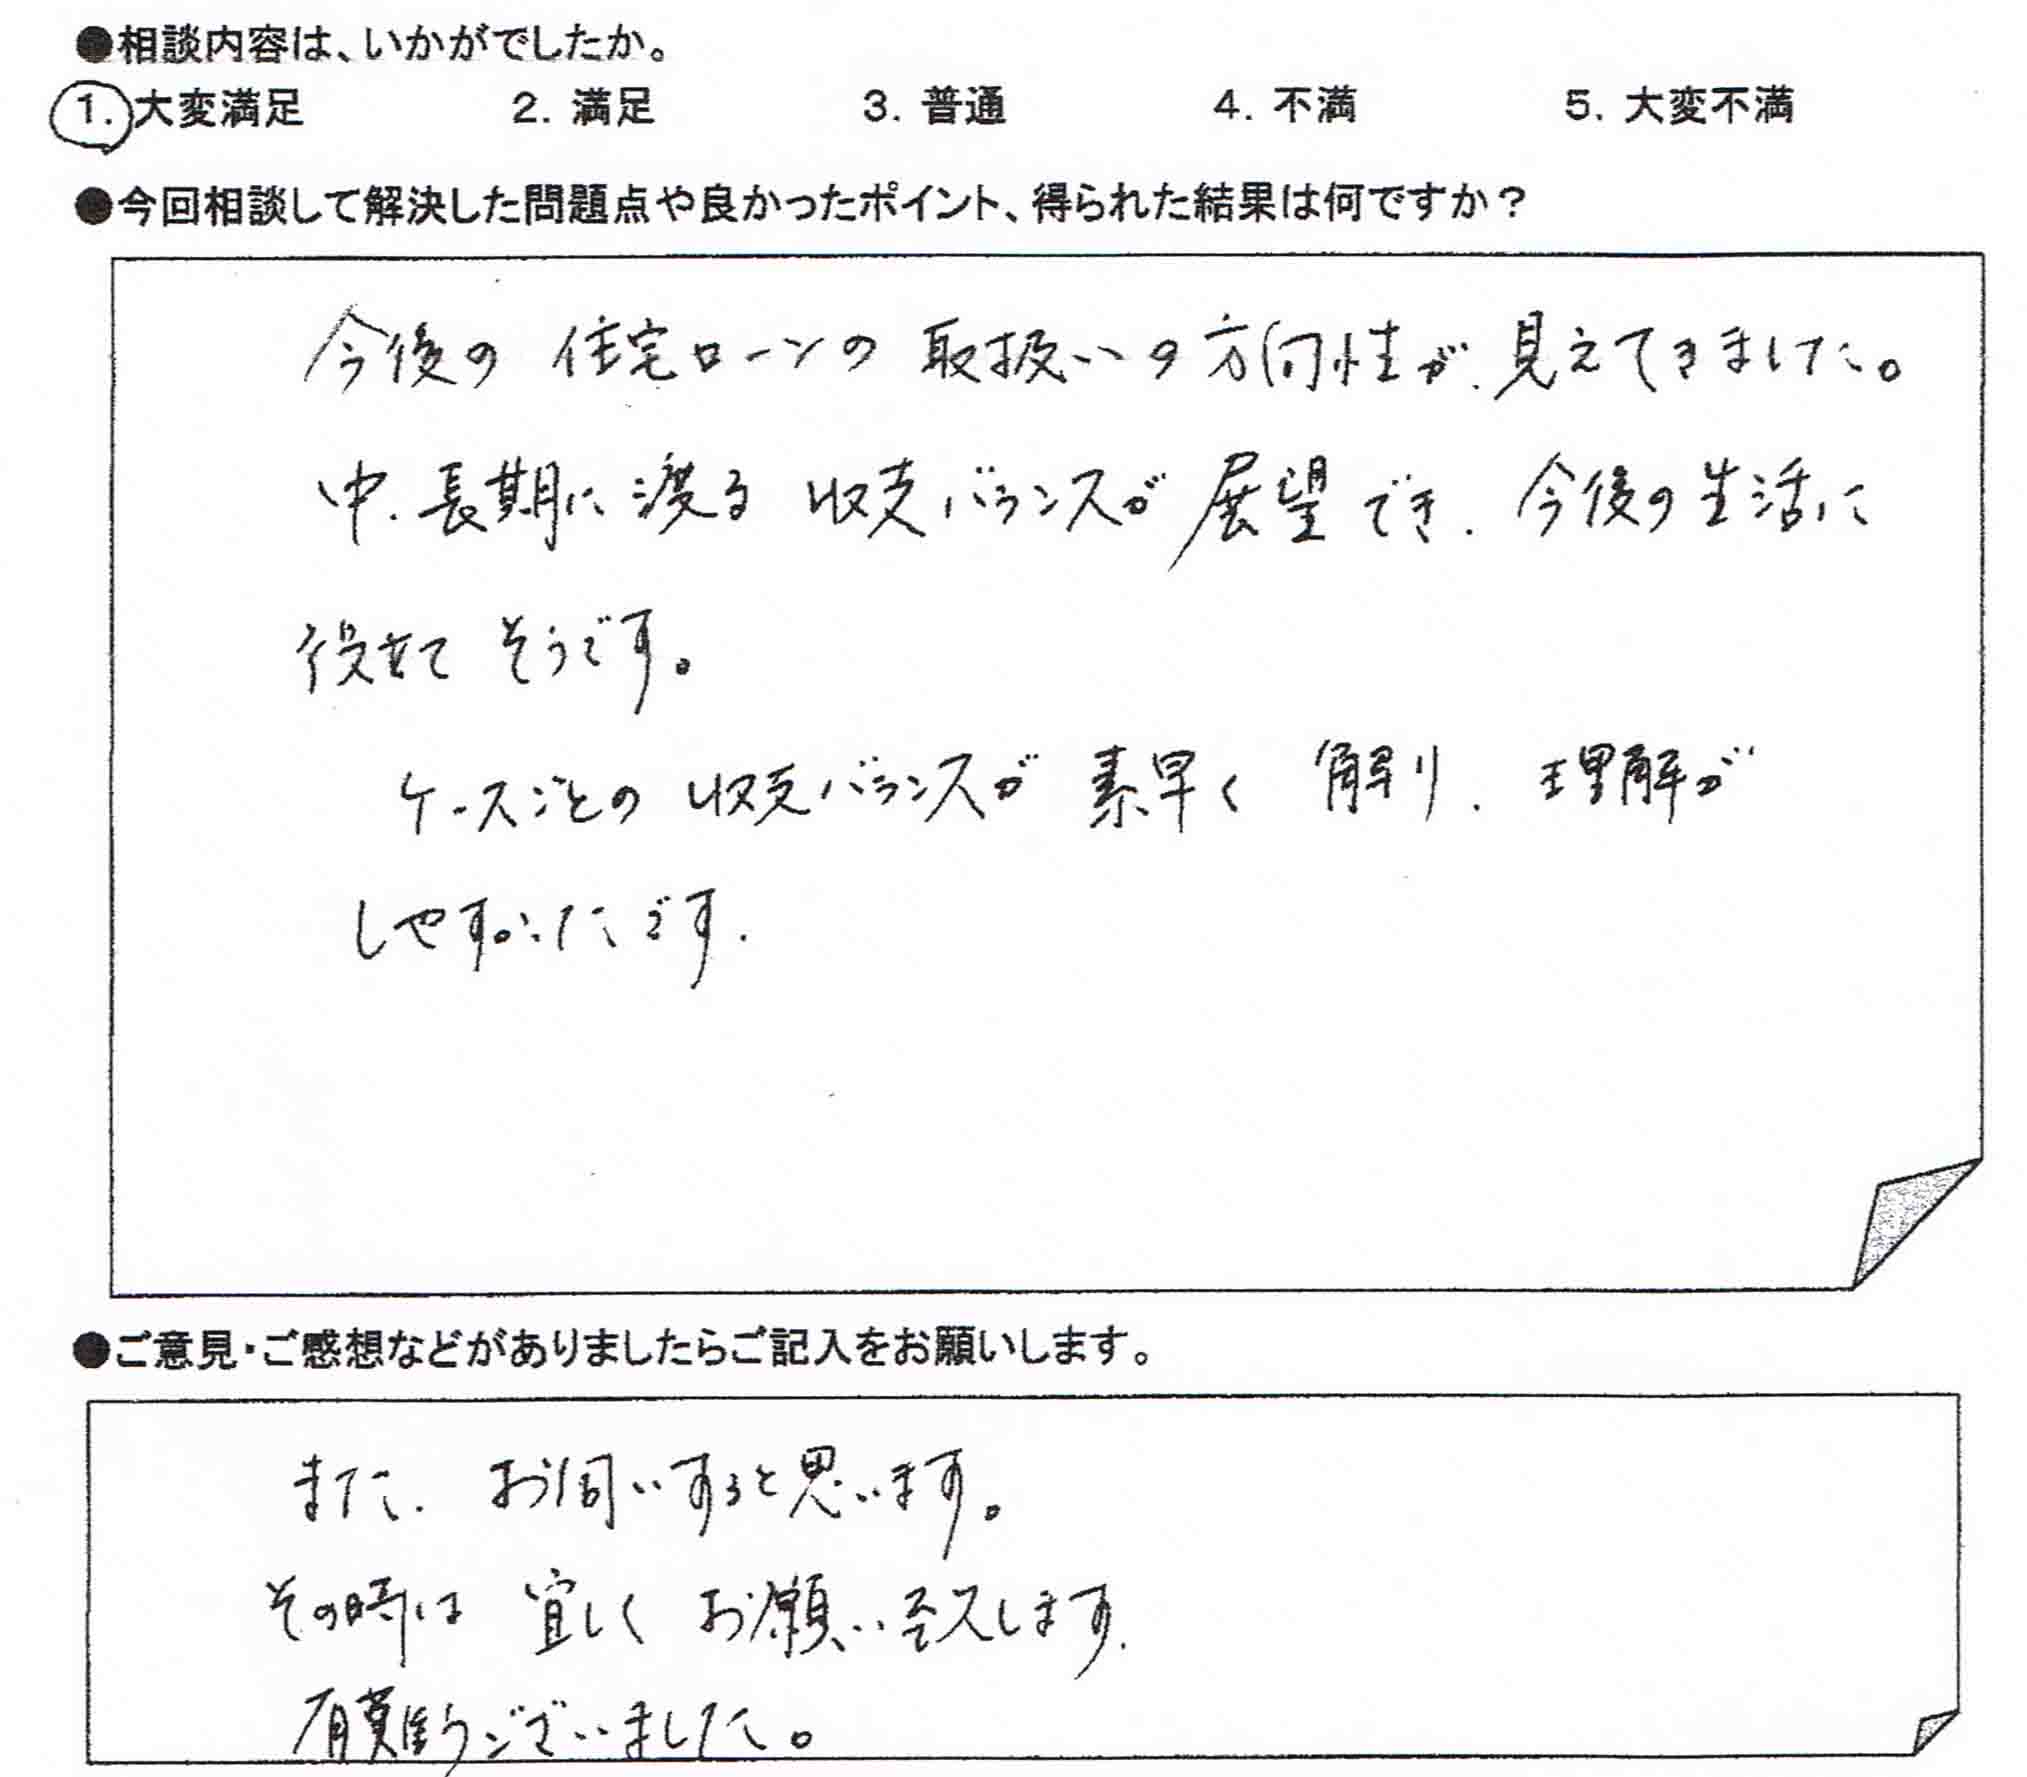 ●相談内容は、いかがでしたか。
1. 大変満足 2. 満足 3. 普通 4. 不満 5. 大変不満
●今回相談して解決した問題点や良かったポイント、得られた結果は何ですか？
今後の 住宅ローンの 取扱いの方向性が、見えてきました。
中、長期に渡る 収支バランスが 展望でき、今後の生活に
役立て そうです。
ケースごとの 収支バランスが 素早く 解り、理解が
しやすかったです。
●ご意見・ご感想などがありましたらご記入をお願いします。
また、お伺いすると思います。
その時は 宜しく お願い致します。
有難うございました。